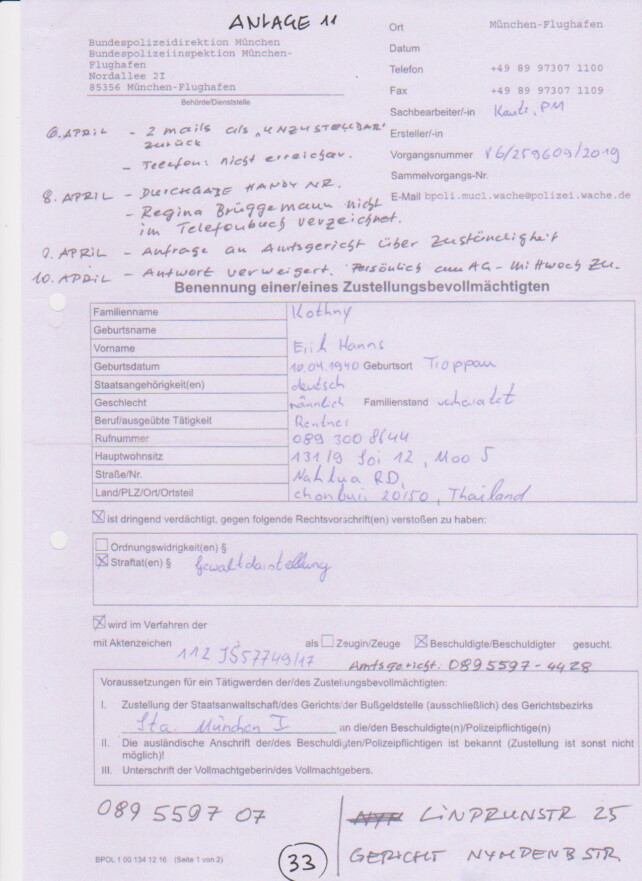 ANLAGE 11
Bundespolizeidirektion München
Bundespolizeiinspektion München-
Flughafen
Nordallee 2I
85356 München-Flughafen
Behörde/Dienststelle
Ort München-Flughafen
Datum
Telefon +49 89 97307 1100
Fax +49 89 97307 1109
Sachbearbeiter/-in PM
Ersteller/-in
Vorgangsnummer V6/259609/2019
Sammelvorgangs-Nr.
E-Mail bpoli.muc1.wache@polizei.wache.de
6. APRIL - 2 mails als "UNZUSTELLBAR"
zurück
- Telefon: nicht erreichbar.
8. APRIL - DURCHGABE HANDY NR.
- Regina Brüggemann nicht
im Telefonbuch verzeichnet.
9. APRIL - Anfrage an Amtsgericht über Zuständigkeit
10. APRIL - Antwort verweigert. Persönlich zum AG - Mittwoch zu.
Benennung einer/eines Zustellungsbevollmächtigten
Familienname Kothny
Geburtsname
Vorname Erich Hanns
Geburtsdatum 10.04.1940 Geburtsort Troppau
Staatsangehörigkeit(en) deutsch
Geschlecht männlich Familienstand verheiratet
Beruf/ausgeübte Tätigkeit Rentner
Rufnummer 089 300 8644
Hauptwohnsitz 131/9 Soi 12, Moo 5
Straße/Nr. Nahlua RD,
Land/PLZ/Ort/Ortsteil chonburi 20150, Thailand
ist dringend verdächtigt, gegen folgende Rechtsvorschrift(en) verstoßen zu haben:
Ordnungswidrigkeit(en) §
Straftat(en) § Gewaltdarstellung
wird im Verfahren der
mit Aktenzeichen 112 JS57749/17 als Zeugin/Zeuge Beschuldigte/Beschuldigter gesucht.
Amtsgericht. 089 5597-4428
Voraussetzungen für ein Tätigwerden der/des Zustellungsbevollmächtigten:
I. Zustellung der Staatsanwaltschaft/des Gerichts/der Bußgeldstelle (ausschließlich) des Gerichtsbezirks
Sta. München I an die/den Beschuldigte(n)/Polizeipflichtige(n)
II. Die ausländische Anschrift der/des Beschuldigten/Polizeipflichtigen ist bekannt (Zustellung ist sonst nicht
möglich)!
III. Unterschrift der Vollmachtgeberin/des Vollmachtgebers.
089 5597 07
LINPRUNSTR 25
GERICHT NYMPENB STR
BPOL 1 00 134 12 16 (Seite 1 von 2)
33